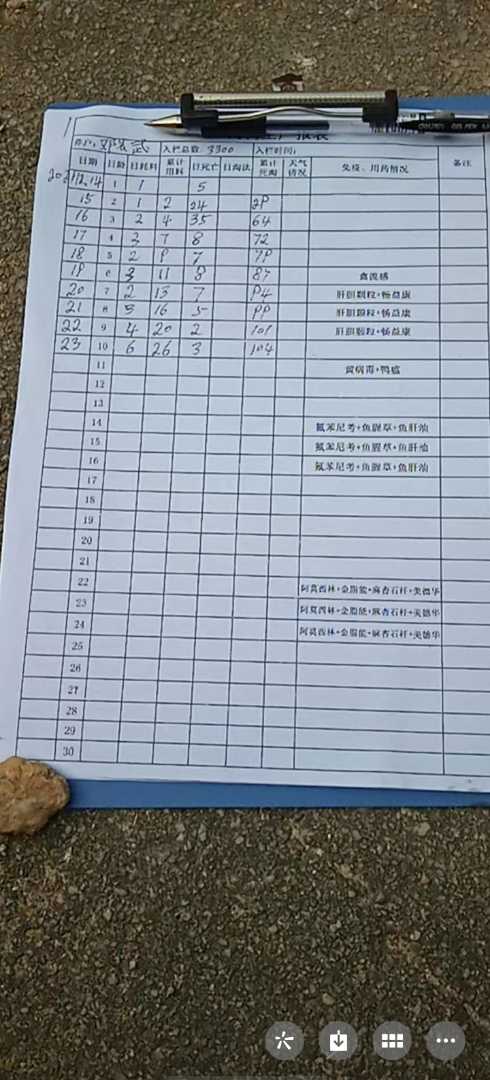 入栏总数: 3300 入栏时间:
日期 日龄 日耗料 累计用料 日死亡 日淘汰 累计死淘 天气情况 免疫、用药情况 备注
12.14 1 1 5
15 2 1 2 24 29
16 3 2 4 35 64
17 4 3 7 8 72
18 5 2 9 7 79
19 6 11 8 87 禽流感
20 7 2 13 7 94 肝胆颗粒+畅益康
21 8 3 16 5 99 肝胆颗粒+畅益康
22 9 4 20 2 101 肝胆颗粒+畅益康
23 10 6 26 3 104
11 黄病毒+鸭瘟
12
13
14 氟苯尼考+鱼腥草+鱼肝油
15 氟苯尼考+鱼腥草+鱼肝油
16 氟苯尼考+鱼腥草+鱼肝油
17
18
19
20
21
22 阿莫西林+金脂能+麻杏石杆+美德华
23 阿莫西林+金脂能+麻杏石杆+美德华
24 阿莫西林+金脂能+麻杏石杆+美德华
25
26
27
28
29
30